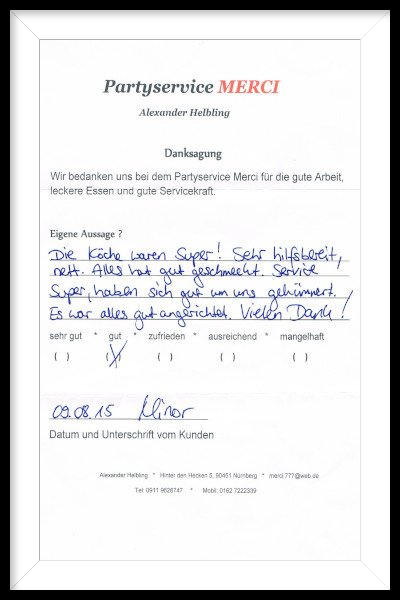 Partyservice MERCI
Alexander Helbling
Danksagung
Wir bedanken uns bei dem Partyservice Merci für die gute Arbeit,
leckere Essen und gute Servicekraft.
Eigene Aussage ?
Die Köche waren Super! Sehr hilfsbereit,
nett. Alles hat gut geschmeckt. Service
Super, haben sich gut um uns gekümmert.
Es war alles gut angerichtet. Vielen Dank!
sehr gut * gut * zufrieden * ausreichend * mangelhaft
( ) (X) ( ) ( ) ( )
09.08.15
Datum und Unterschrift vom Kunden
Alexander Helbling * Hinter den Hecken 5, 90451 Nürnberg * merci.777@web.de
Tel: 0911 9626747 * Mobil: 0162 7222339